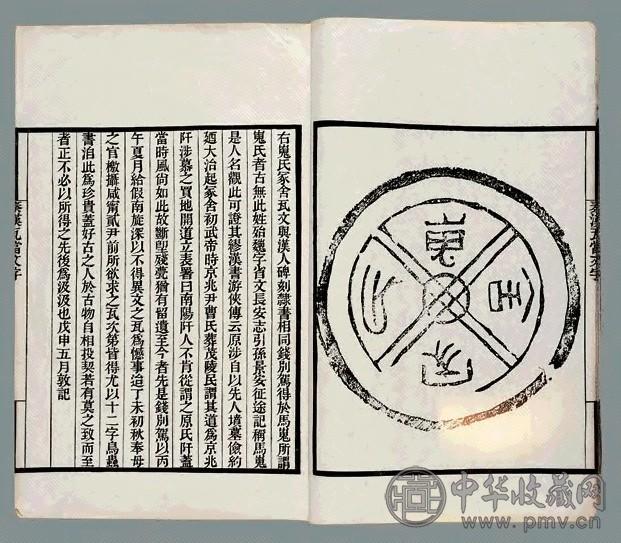 嵬氏冢舍
秦漢瓦當文字
右嵬氏冢舍瓦文與漢人碑刻隸書相同錢別駕得於馬嵬所謂
嵬氏者古無此姓殆魏字省文長安志引孫景安征途記稱馬嵬
是人名觀此可證其繆漢書游俠傳云原涉自以先人墳墓儉約
廼大治起冢舍初武帝時京兆尹曹氏葬茂陵民謂其道為京兆
阡涉慕之買地開道立表署曰南陽阡人不肯從謂之原氏阡蓋
當時風尚如此故斷塱殘甍猶有留遺至今者先是錢別駕以丙
午夏月給假南旋深以不得異文之瓦為憾事迨丁未初秋奉母
之官檄攝咸甯貳尹前所欲求之瓦次第皆得尤以十二字鳥蟲
書洎此為珍貴蓋好古之人於古物自相投契若有莫之致而至
者正不必以所得之先後為汲汲也戊申五月敦記
秦漢瓦當文字
中华收藏网
www.pmv.cn